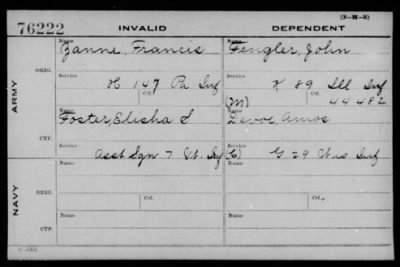 (3-H-5)
76222 INVALID DEPENDENT
Name Name
Zanne, Francis Fengler, John
ORIG.
Service Service
H 147 Pa Inf K 89 Ill Inf
Ctf. Ctf.
ARMY
(M) 44482
Name
Foster, Elisha S Devoe, Amos
CTF.
Service
Asst Sgn 7 Vt. Inf (C) G 29 Wis Inf
Name Name
ORIG.
Service Service
Ctf. Ctf.
NAVY
Name Name
CTF.
Service Service